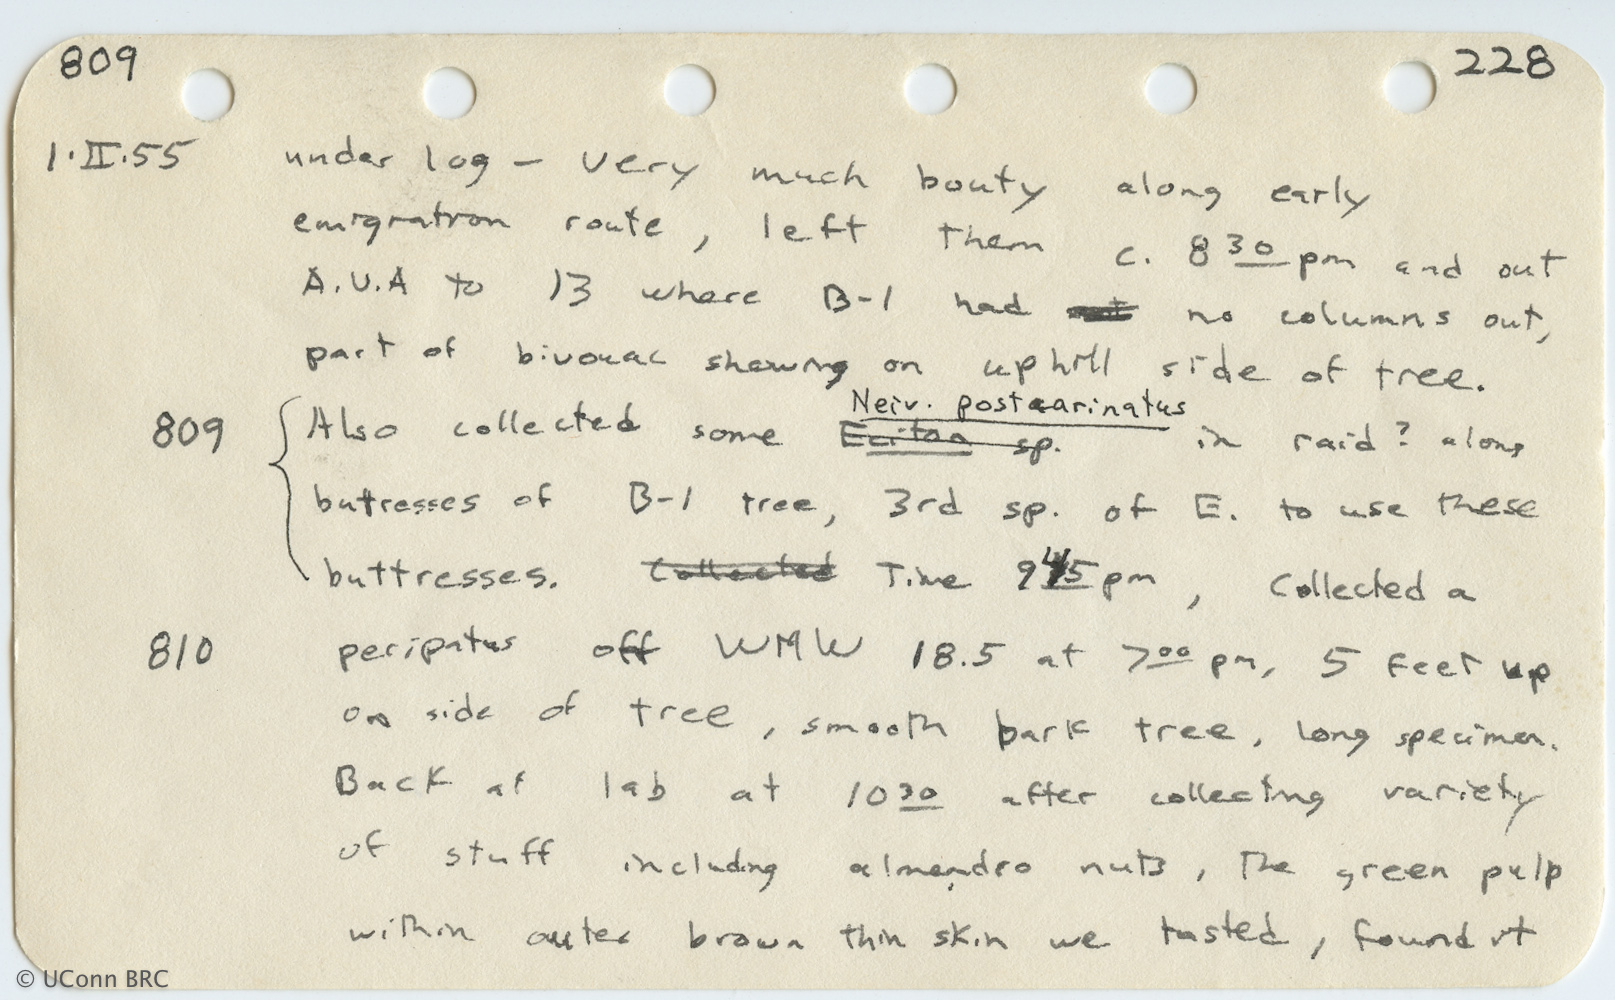 809 228
1·II·55 under log – very much bouty along early
emigration route, left them c. 8 30 pm and out
A.V.A to 13 where B-1 had no columns out,
part of bivouac showing on uphill side of tree.
Neiv. postcarinatus
809 Also collected some Eciton sp. in raid? along
butresses of B-1 tree, 3rd sp. of E. to use these
buttresses. Collected Time 9 45 pm, Collected a
810 peripatus off WMW 18.5 at 7 00 pm, 5 feet up
on side of tree, smooth bark tree, long specimen.
Back at lab at 10 30 after collecting variety
of stuff including almendro nuts, the green pulp
within outer brown thin skin we tasted, found it
© UConn BRC